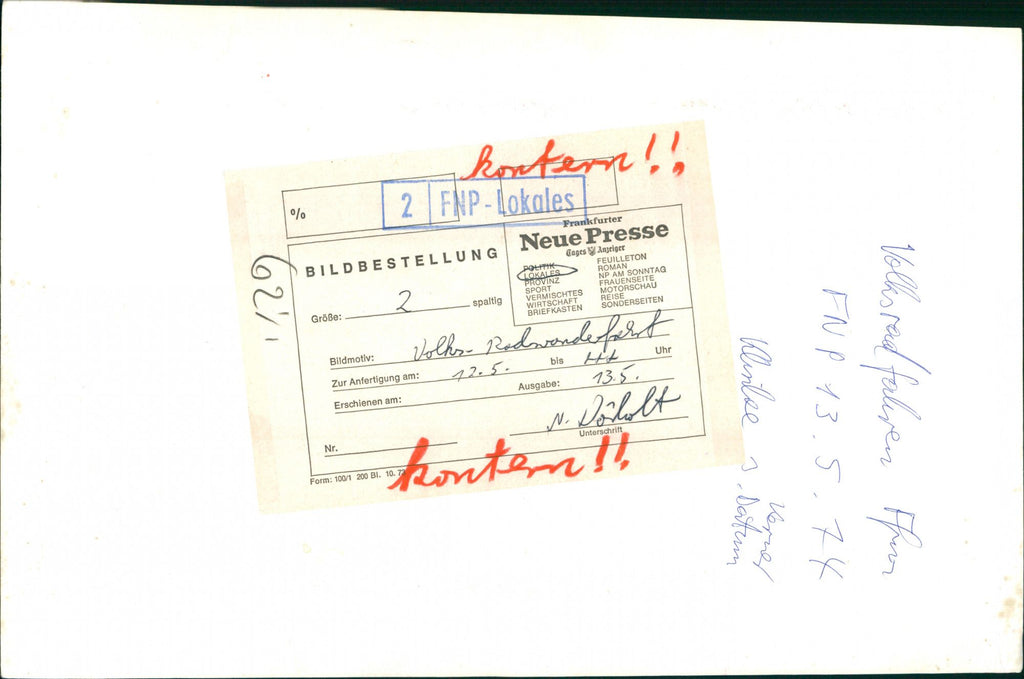 kontern!!
%
2 FNP-Lokales
BILDBESTELLUNG
Frankfurter
Neue Presse
Tages Anzeiger
POLITIK
LOKALES
PROVINZ
SPORT
VERMISCHTES
WIRTSCHAFT
BRIEFKASTEN
FEUILLETON
ROMAN
NP AM SONNTAG
FRAUENSEITE
MOTORSCHAU
REISE
SONDERSEITEN
Größe: 2 spaltig
Bildmotiv: Volks-Radwanderfahrt
Zur Anfertigung am: 12.5. bis Uhr
Erschienen am: Ausgabe: 13.5.
N.
Unterschrift
Nr.
kontern!!
Form: 100/1 200 Bl. 10.
Volksradfahren Ffm
FNP 13.5.74
Datum